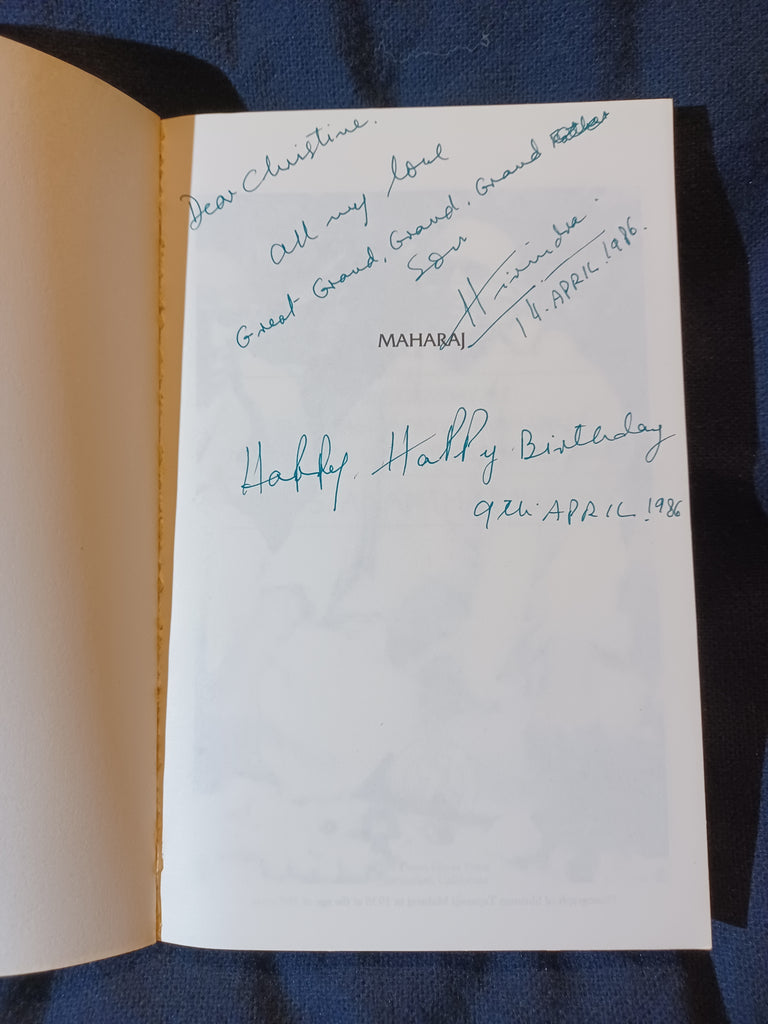 Dear Christine.
all my love
Great Grand, Grand, Grand
Son
Hirindra.
14. APRIL. 1986.
MAHARAJ
Happy. Happy Birthday
9th. APRIL. 1986